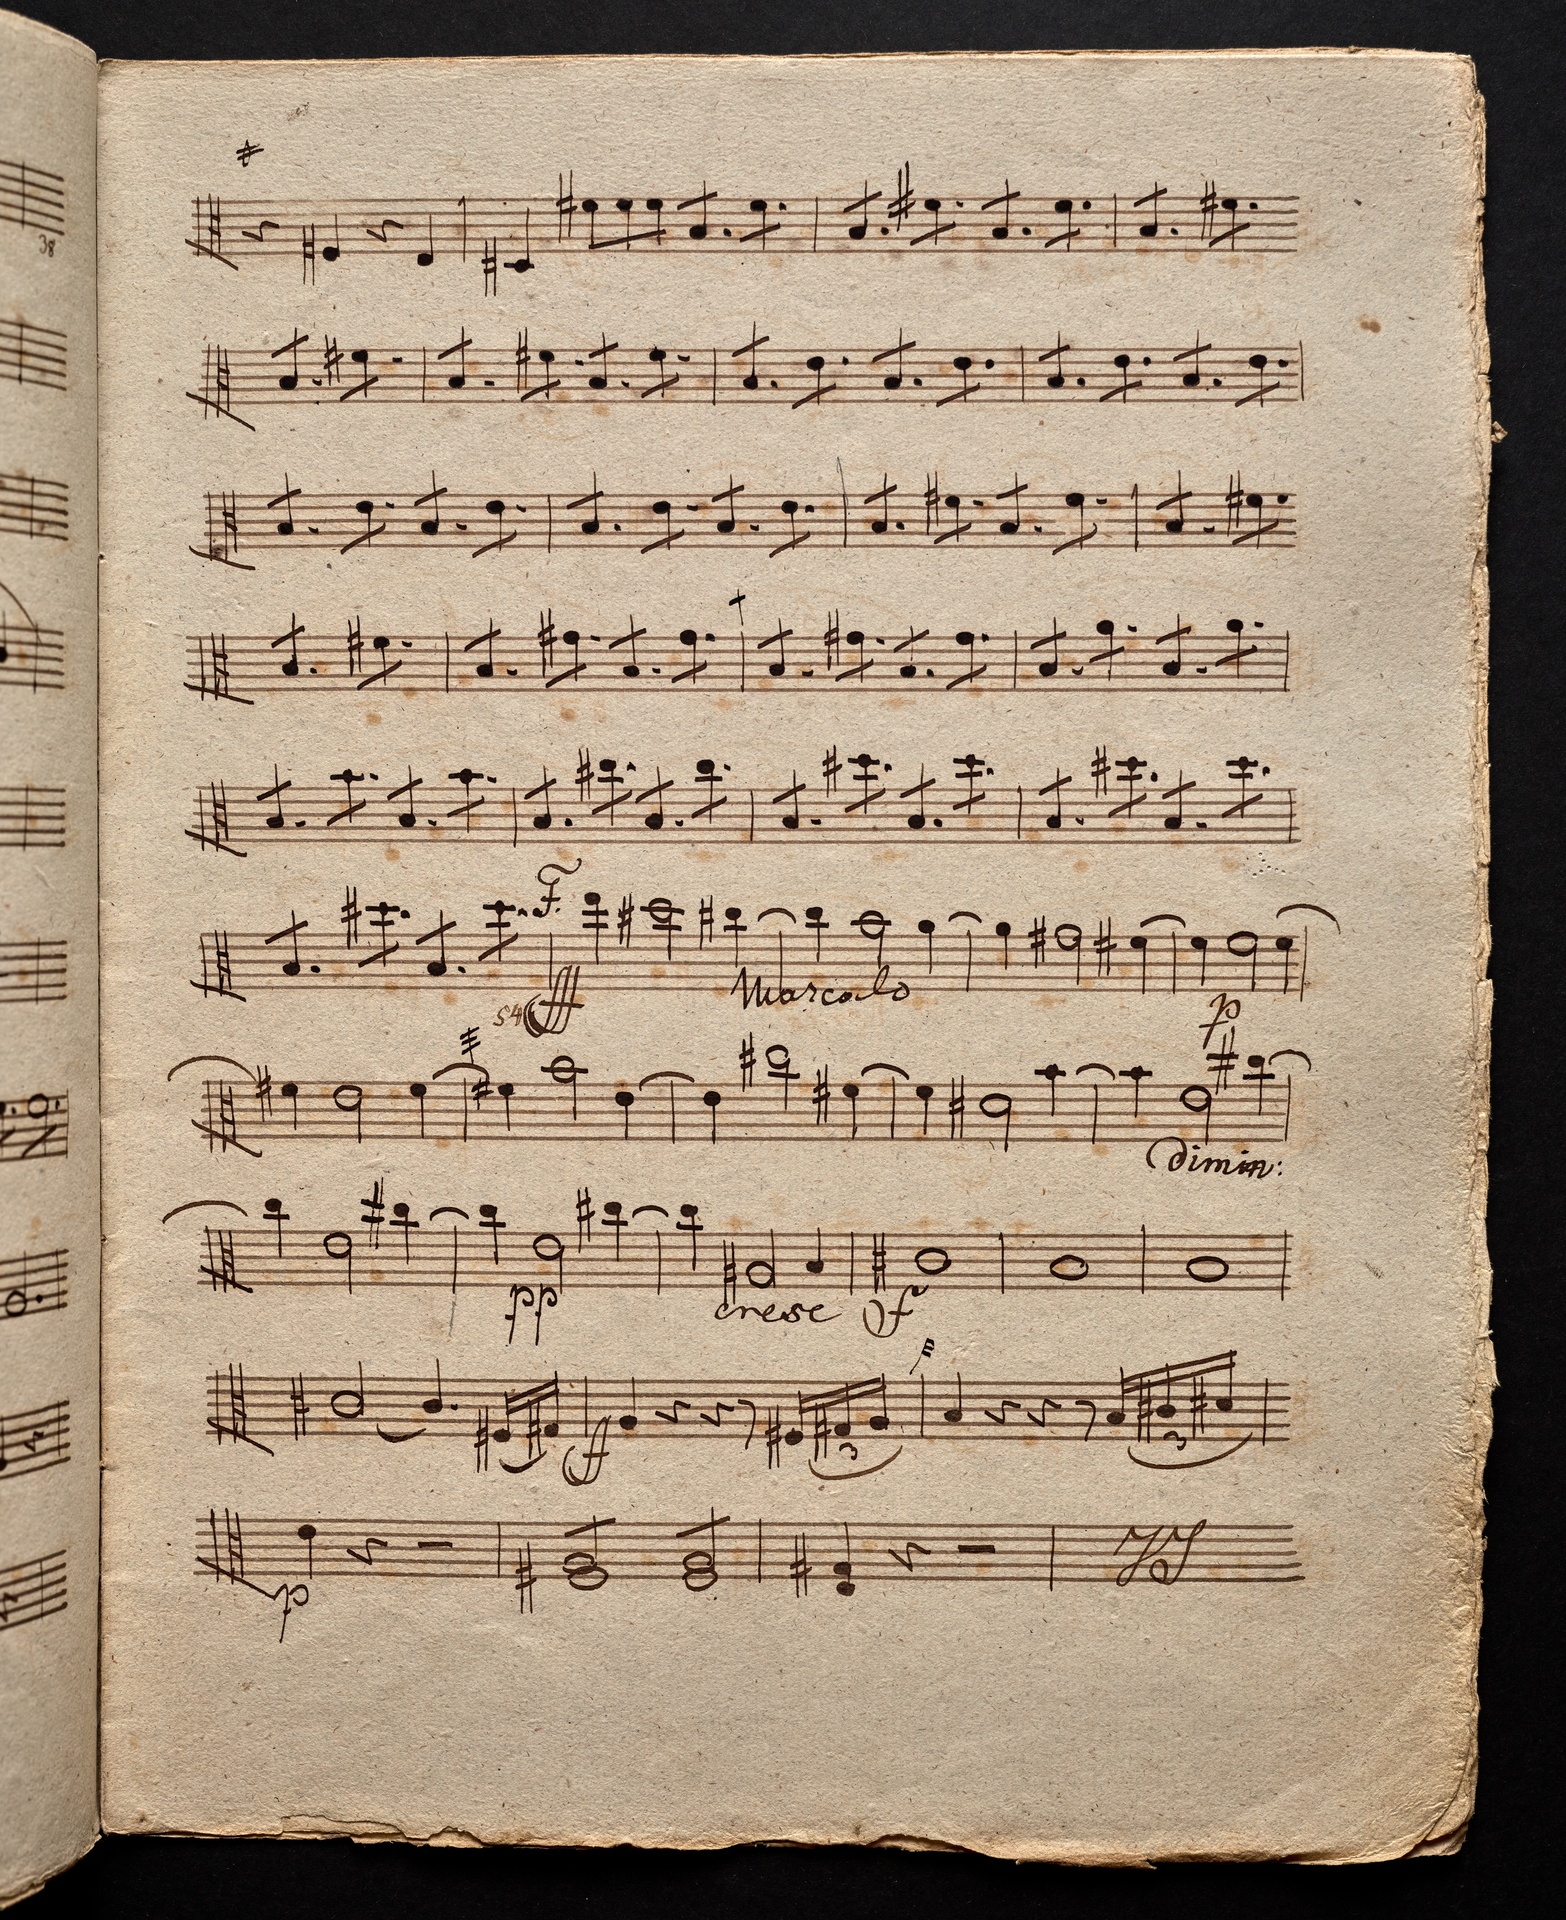 38
F.
54 fff Marcalo
p
dimin:
pp cresc f
ff 3 3
p